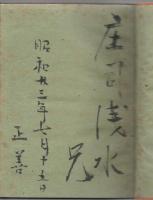 庄司浅水
兄
昭和廿三年七月十五日
正善